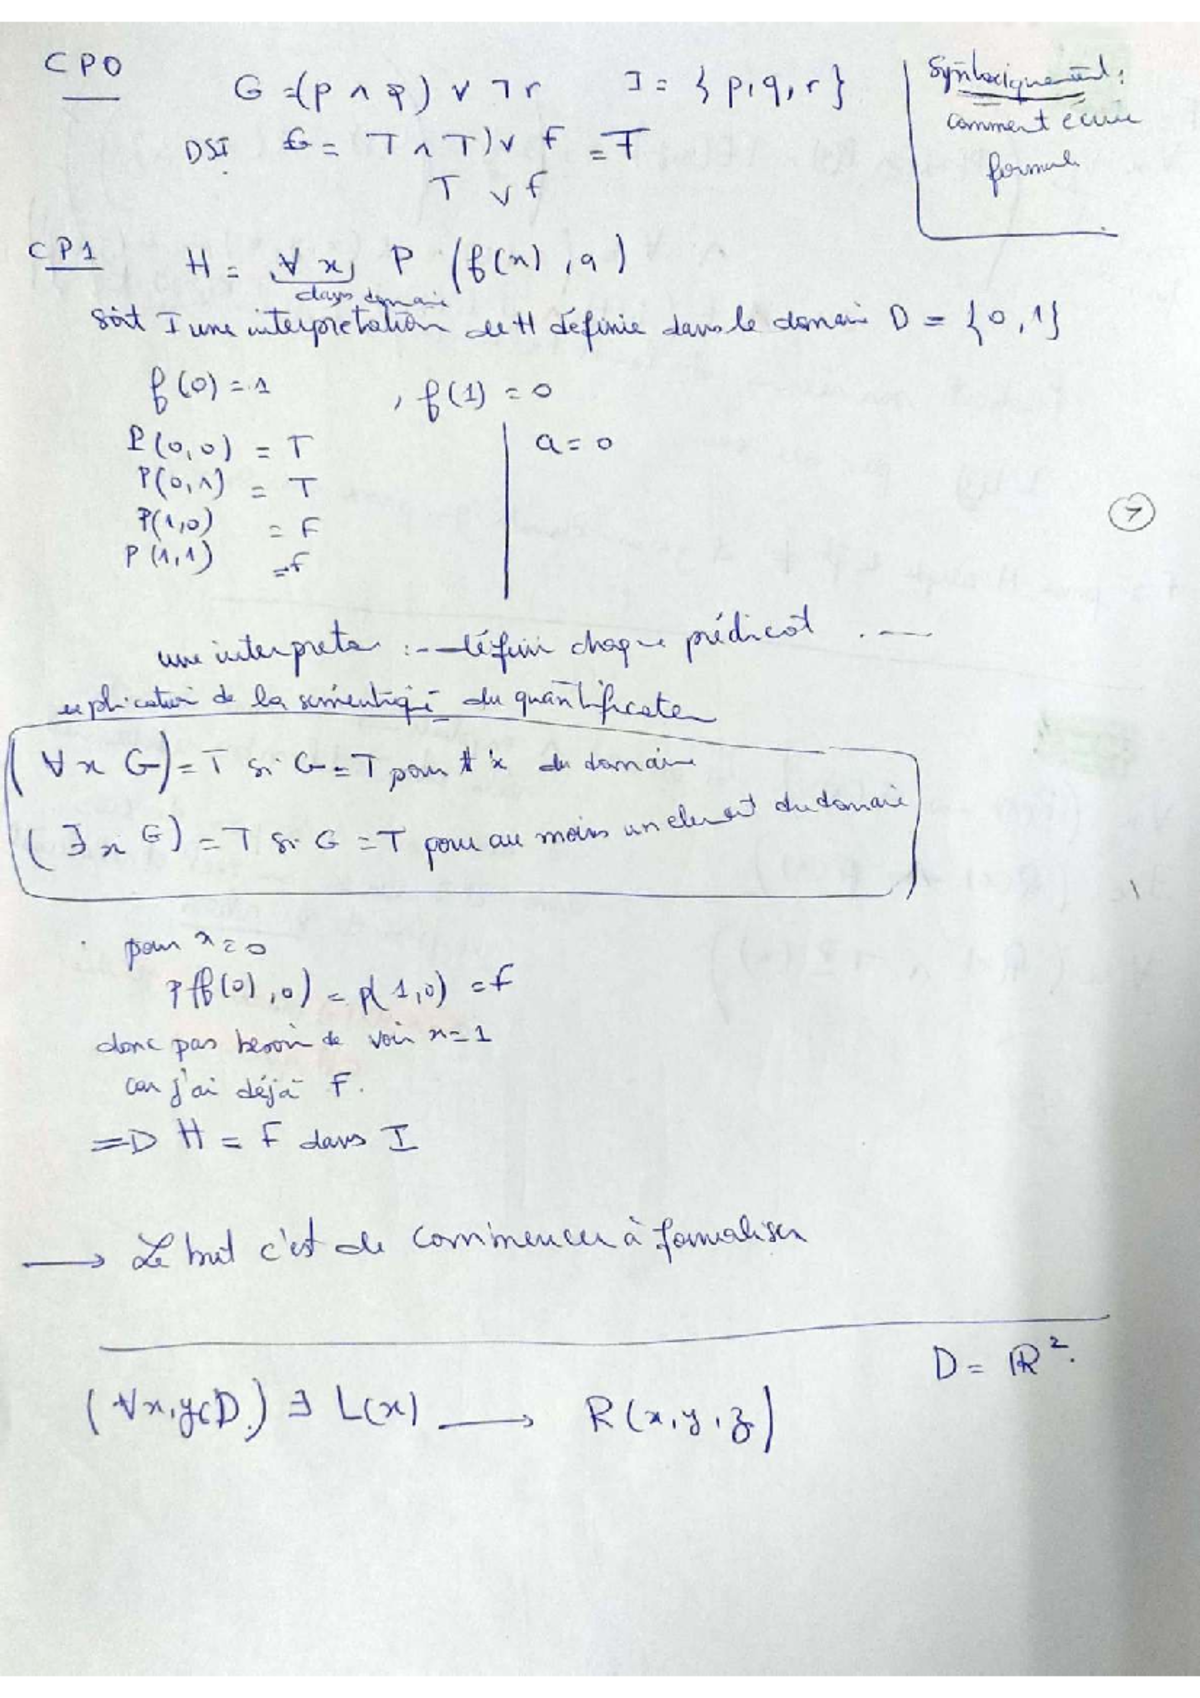 CP0
G = (p ∧ q) ∨ ¬r    I = {p, q, r}
Syntaxiquement :
comment écrire
formule
DSI G = T ∧ T) ∨ F = T
T ∨ F
CP1
H = ∀x P (f(x), a)
dans domaine
Soit I une interpretation de H définie dans le domaine D = {0, 1}
f(0) = 1 , f(1) = 0
P(0,0) = T    a = 0
P(0,1) = T
P(1,0) = F
P(1,1) = F
7
une interpreta : -- définir chaque prédicat . --
explication de la sémentique du quantificateur
(∀x G) = T si G = T pour tt x du domaine
(∃x G) = T si G = T pour au moins un element du domaine
pour x = 0
P(f(0), 0) = P(1,0) = F
donc pas besoin de voir x = 1
car j'ai déjà F.
⇒ H = F dans I
→ Le but c'est de commencer à formaliser
D = ℝ².
(∀x,y∈D.) ∃ L(x) → R(x,y,z)